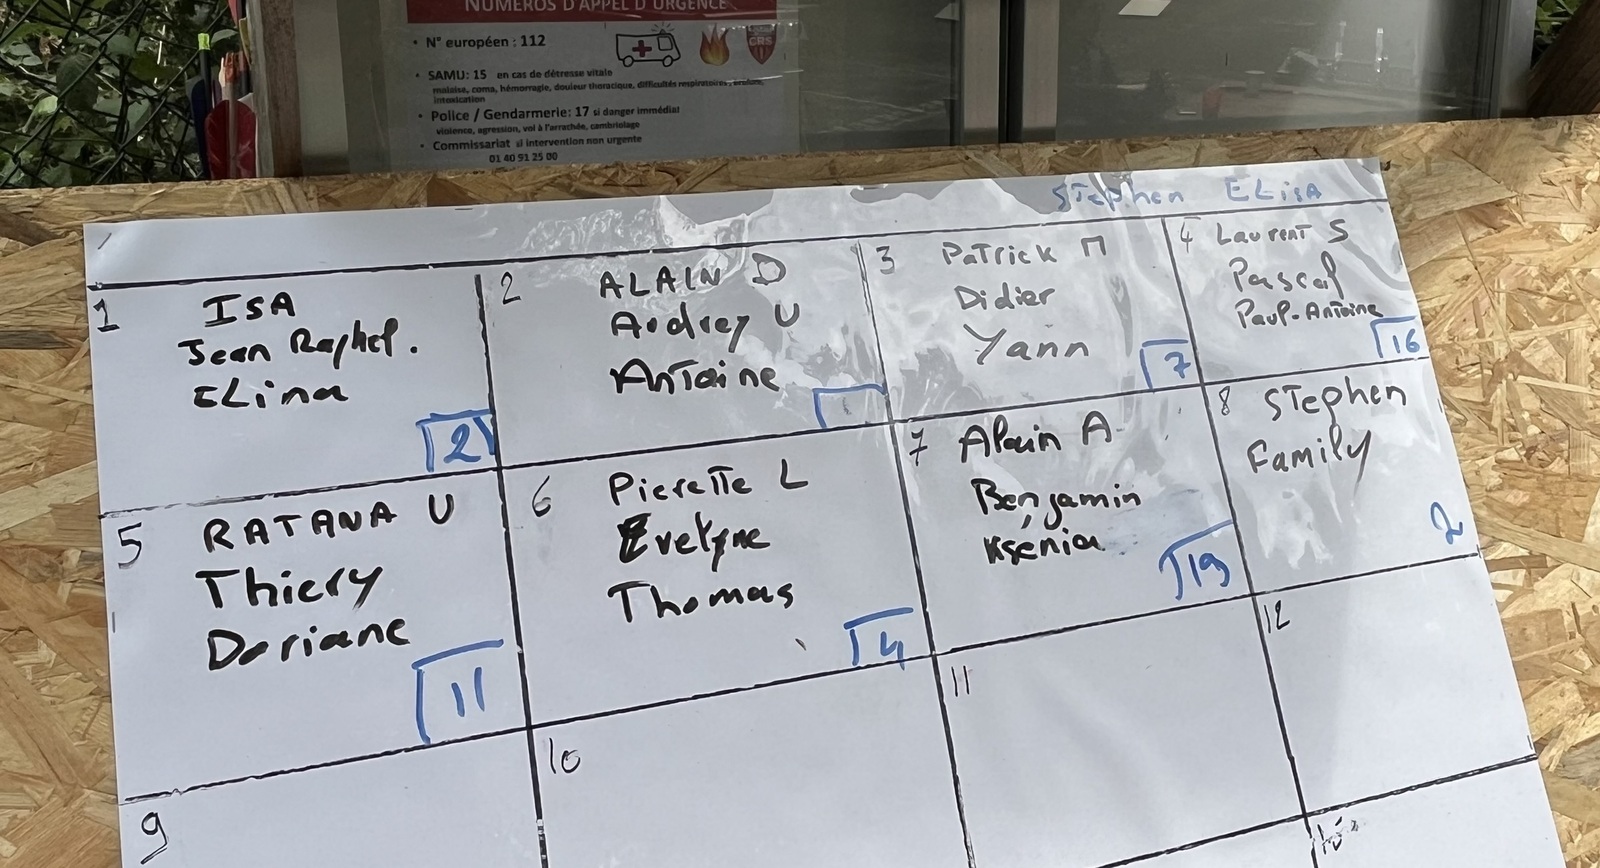 NUMÉROS D'APPEL D'URGENCE
• N° européen : 112
CRS
• SAMU: 15 en cas de détresse vitale
malaise, coma, hémorragie, douleur thoracique, difficultés respiratoires,
intoxication
• Police / Gendarmerie: 17 si danger immédiat
violence, agression, vol à l'arrachée, cambriolage
• Commissariat si intervention non urgente
01 40 91 25 00
Stephen ELisA
1 ISA
Jean Raphel.
ELina
2
2 ALAIN D
Audrey U
Antoine
3 Patrick M
Didier
Yann
7
4 Laurent S
Pascal
Paul-Antoine
16
5 RATANA U
Thiery
Doriane
11
6 Pierette L
Evelyne
Thomas
4
7 Alain A
Benjamin
Ksenia
19
8 Stephen
Family
2
9
10
11
12